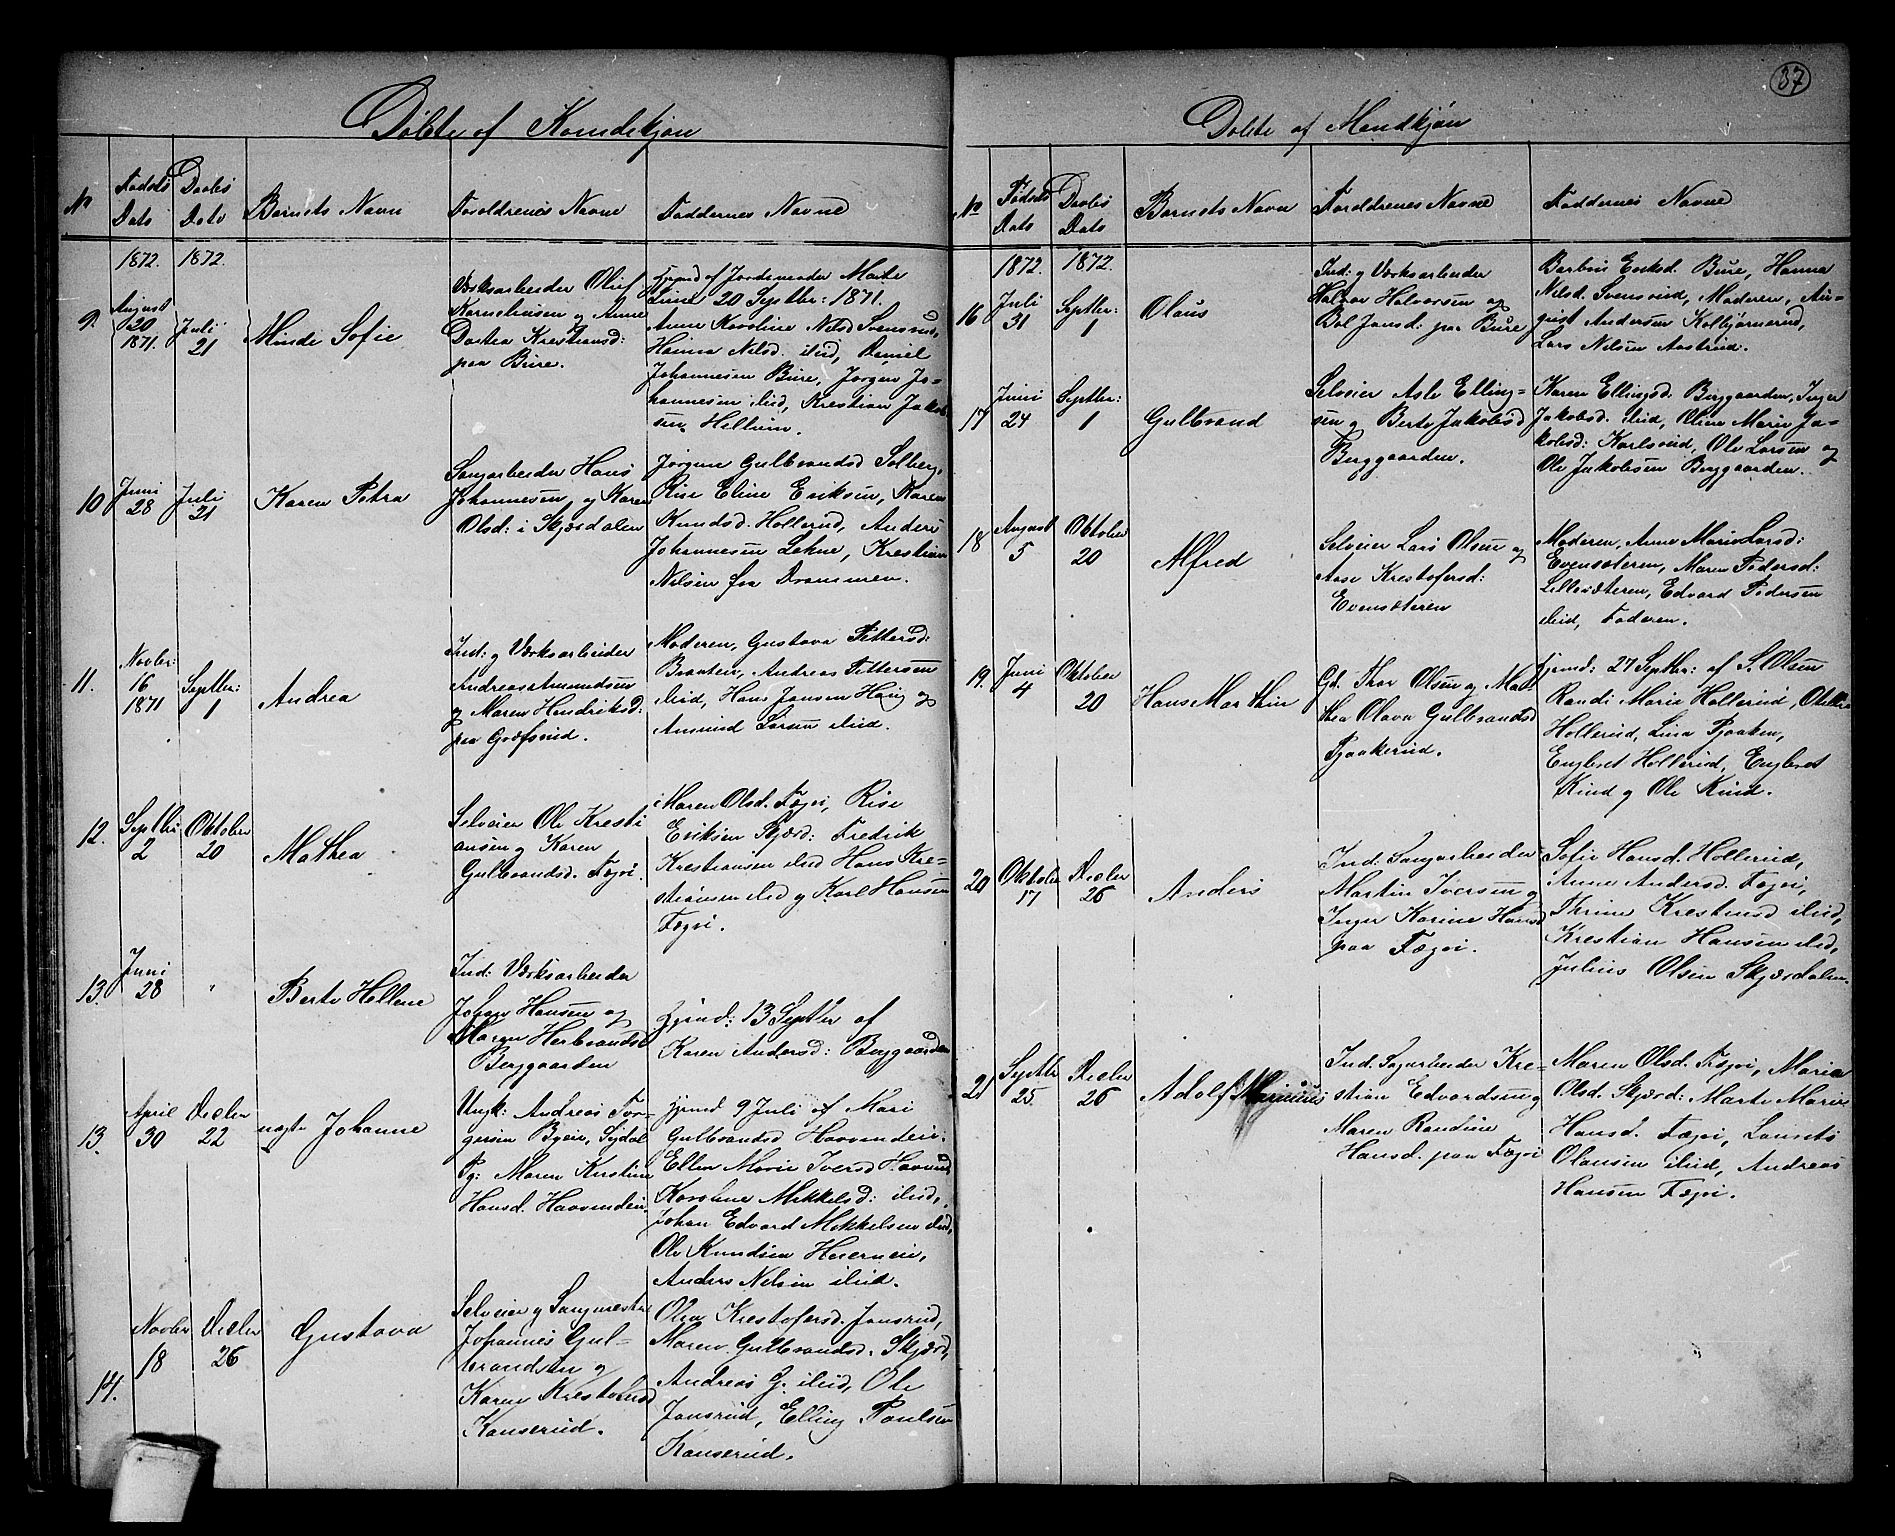 Døbte af Kvindekjøn
No
Fødsels Dato
Daabs Dato
Barnets Navn
Forældrenes Navne
Faddernes Navne
1872. 1872.
9.
August 20 1871.
Juli 21
Minde Sofie
Værksarbeider Oluf
Kornelius­en og Anne
Dortea Krestiansd:
paa Bure.
Hjemd. af Jordemoder Marte
Line 20 Septbr: 1871.
Anne Karoline Nilsd Svensrud,
Hanna Nilsd. ibid, Daniel
Johannesen Bure, Jørgen Jo-
hannesen ibid, Krestian Jakob
sen Hellum.
10
Juni 28
Juli 21
Karen Petra
Sagarbeider Hans
Johannesen og Karen
Olsd: i Skjærdalen
Jørgine Gulbrandsd Solberg,
Rise Eline Eriksen, Karen
Knudsd. Hollerud, Anders
Johannesen Lehne, Krestian
Nilsen fra Drammen.
11.
Novbr: 16 1871
Septbr: 1
Andrea
Ind: og Værksarbeider
Andreas Amundsen
og Maren Hendriksd:
paa Græfsrud.
Moderen, Gustava Pettersd:
Braaten, Andreas Pettersen
ibid, Hans Jansen Haug og
Amund Larsen ibid.
12.
Septbr: 2
Oktober 20
Mathea
Selveier Ole Kresti
ansen og Karen
Gulbrandsd. Fægri.
Maren Olsd. Fægri, Rise
Eriksen Skjærd: Fredrik
Krestiansen ibid Hans Kre-
stiansen ibid og Karl Hansen
Fægri.
13.
Juni 28
"
Berte Hellene
Ind: Værksarbeider
Johan Hansen og
Maren Herbrandsd
Berggaarden
Hjemd: 13 Septbr af
Karen Andersd: Berggaarden
13.
April 30
Decbr 22
uægte Johanne
Ungk: Andreas Tor-
gersen Byeie, Sigdal
Pg: Maren Kirstine
Hansd. Haavendeie.
Hjemd 9 Juli af Mari
Gulbrandsd Haavendeie.
Ellen Marie Iversd Haavend
Karoline Mikkelsd: ibid,
Johan Edvard Mikkelsen ibid,
Ole Knudsen Hverneie,
Anders Nilsen ibid.
14.
Novbr 18
Decbr 26
Gustava
Selveier og Sangmester
Johannes Gul-
brandsen og
Karen Krestofersd
Kanserud.
Olea Krestofersd. Jonsrud,
Maren Gulbrandsd. Skjærd,
Andreas G. ibid, Ole
Jonsrud, Elling Paulsen
Kanserud.
37
Døbte af Mandkjøn
No
Fødsels Dato
Daabs Dato
Barnets Navn
Forældrenes Navne
Faddernes Navne
1872. 1872.
16
Juli 31
Septbr: 1
Olaus
Ind: og Værksarbeider
Halvor Halvorsen og
Bol Jonsd: paa Bure
Barbra Eriksd. Bure, Hanna
Nilsd. Svensrud, Moderen, Au-
gust Andersen Kolbjørnrud,
Lars Nilsen Aastrud.
17
Juni 24
Septbr: 1
Gulbrand
Selveier Asle Elling-
sen og Berte Jakobsd
Berggaarden.
Karen Ellingsd. Berggaarden, Inger
Jakobsd. ibid, Oline Marie Ja-
kobsd: Karlsrud, Ole Larsen og
Ole Jakobsen Berggaarden.
18
August 5
Oktober 20
Alfred
Selveier Lars Olsen og
Aase Krestofersd:
Evensæteren
Moderen, Anne Marie Larsd:
Evensæteren, Maren Pedersd:
Lillesæteren, Edvard Pedersen
ibid, Faderen.
19.
Juni 4
Oktober 20
Hans Marthin
Gd. Thor Olsen og Mar
thea Olava Gulbrandsd
Tjaakerud.
Hjemd: 27 Septbr: af S. Olsen
Randi Marie Hollerud,
Hollerud, Lina Tjaaken,
Engbret Hollerud, Engbret
Rud og Ole Rud.
20
Oktober 17
Decbr 26
Anders
Ind: Sangarbeider
Martin Iversen og
Inger Karine Hansd
paa Fægri.
Sofie Hansd. Hollerud,
Anne Andersd. Fægri,
Thrine Krestensd ibid,
Krestian Hansen ibid,
Julius Olsen Skjærdalen.
21
Septbr 25.
Decbr 26
Adolf Marinius
Ind: Sagarbeider Kre-
stian Edvardsen og
Maren Randine
Hansd. paa Fægri
Maren Olsd. Fægri, Maria
Olsd. Skjærd: Marte Marie
Hansd. Fægri, Laurets
Olausen ibid, Andreas
Hansen Fægri.